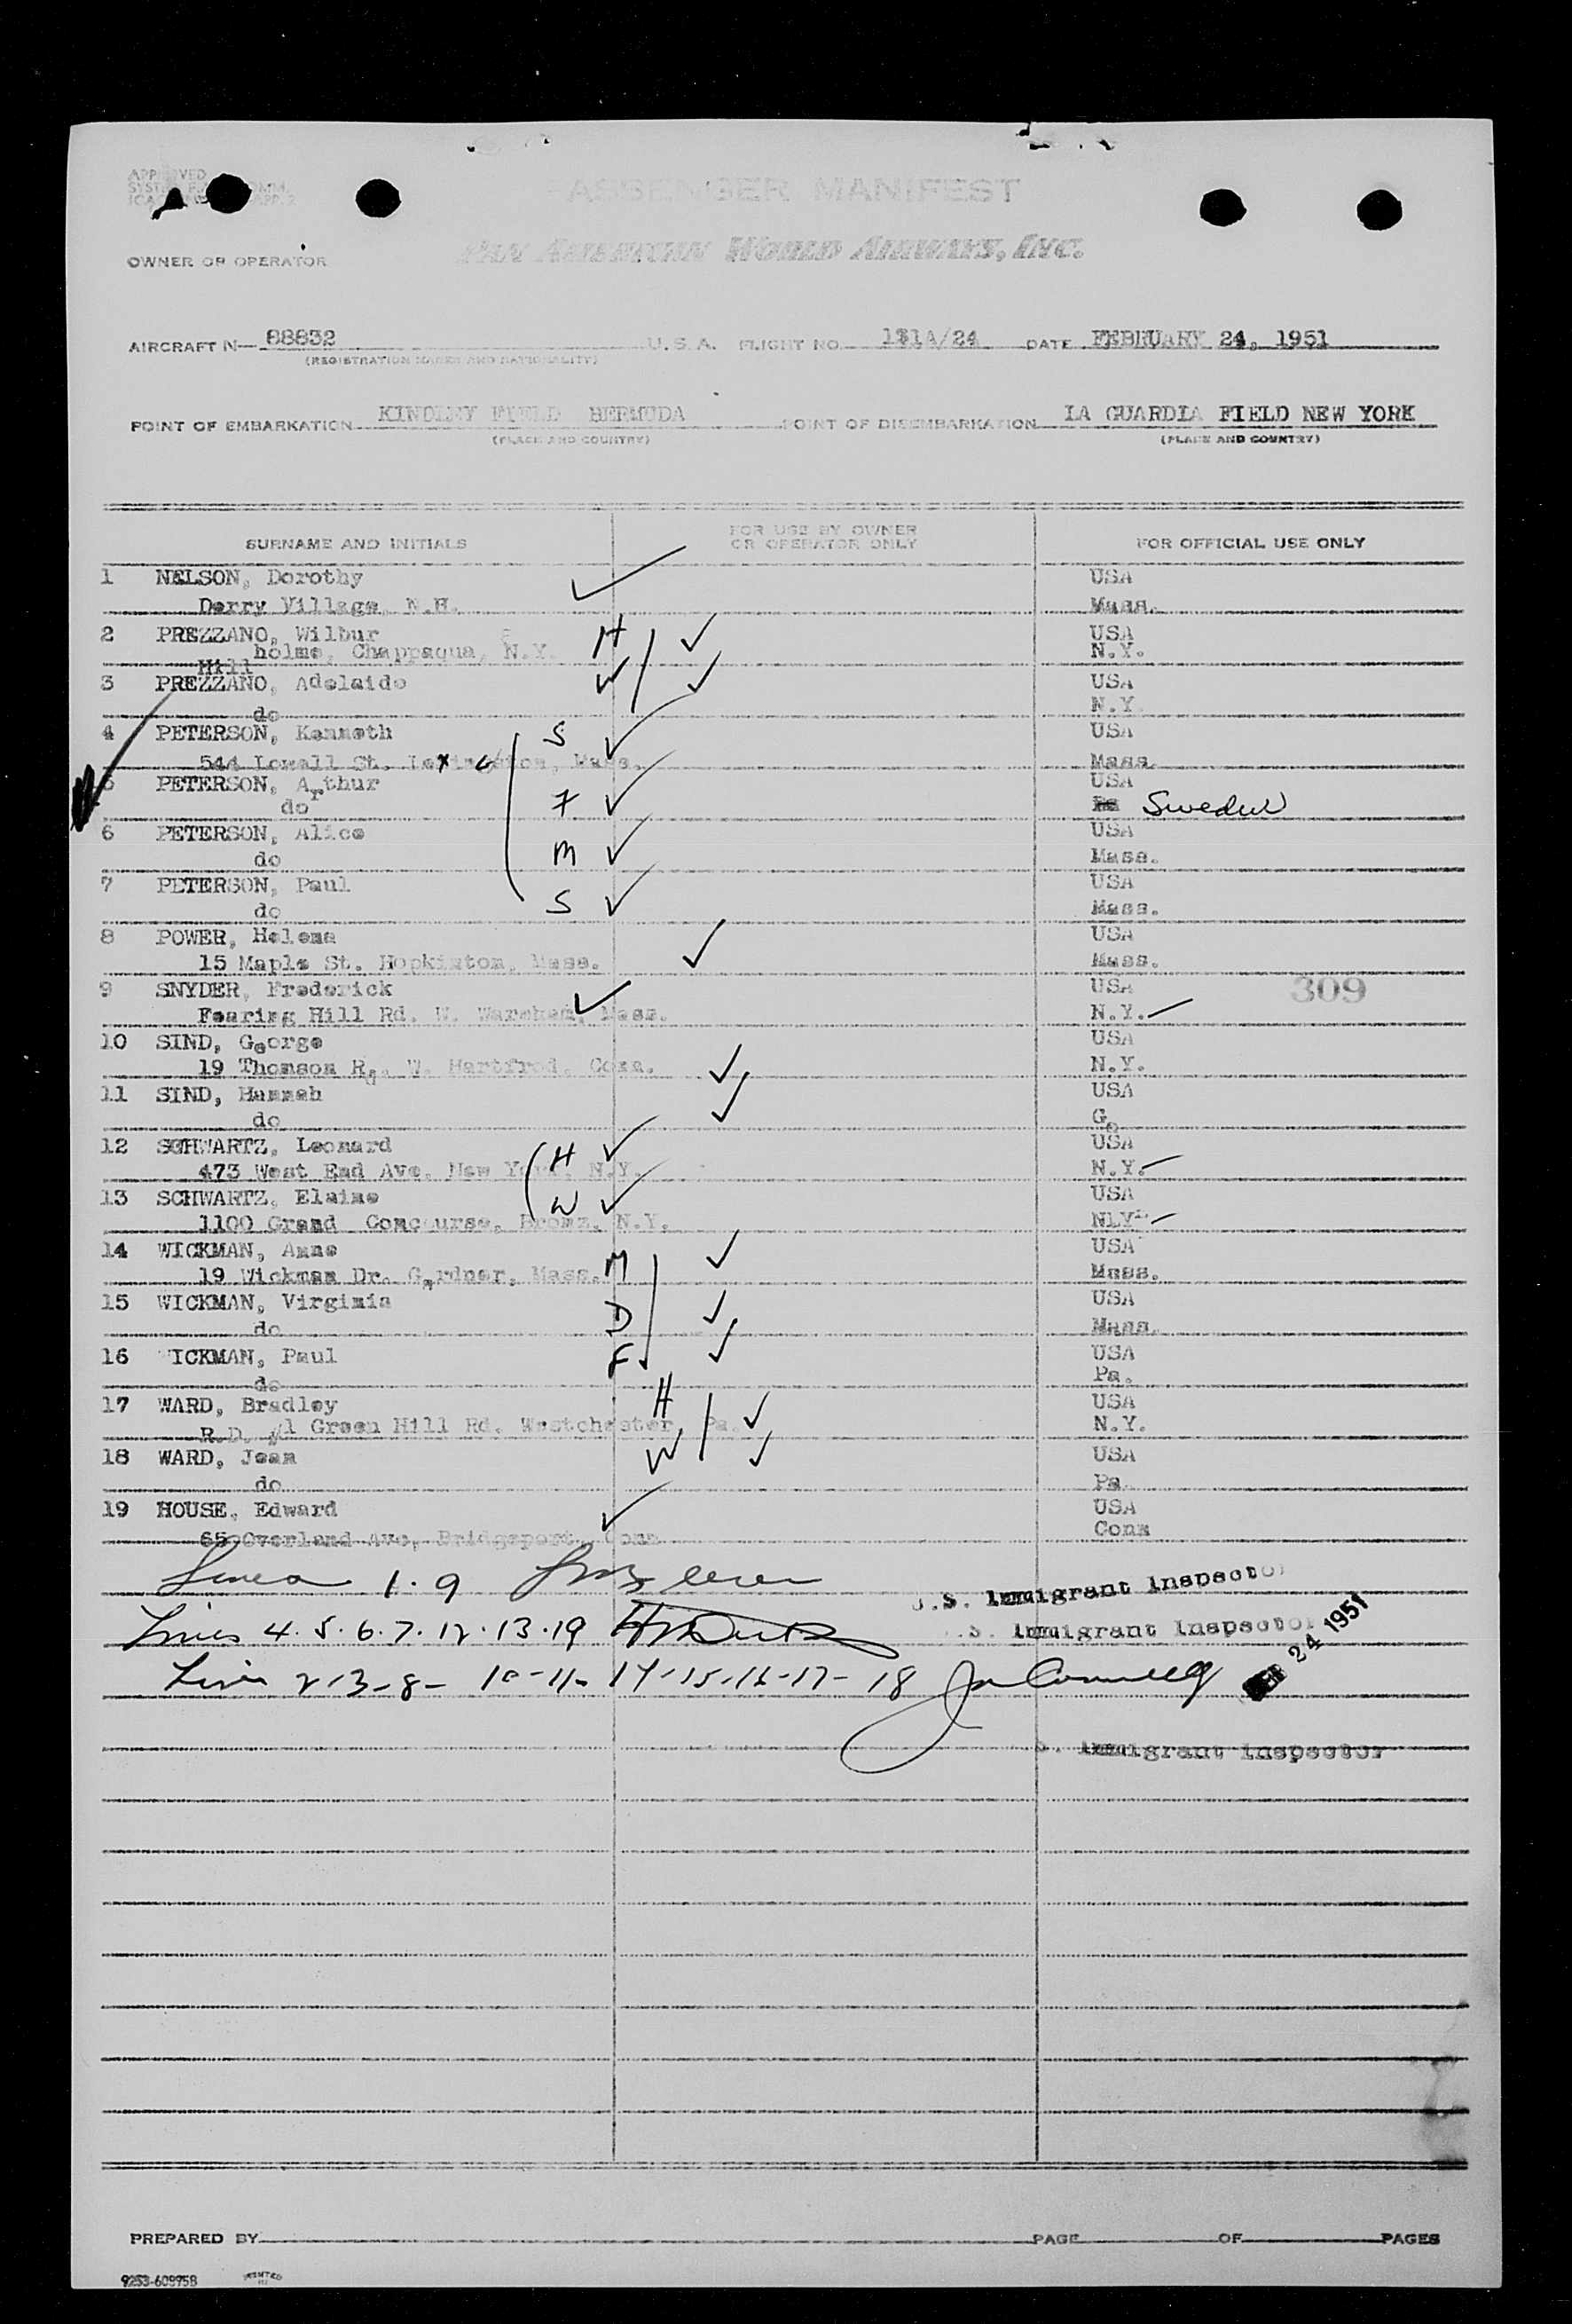 PASSENGER MANIFEST
OWNER OR OPERATOR PAN AMERICAN WORLD AIRWAYS, INC.
AIRCRAFT N— 88832 U.S.A. FLIGHT NO. 131A/24 DATE FEBRUARY 24, 1951
(REGISTRATION MARKS AND NATIONALITY)
POINT OF EMBARKATION KINDLEY FIELD BERMUDA POINT OF DISEMBARKATION LA GUARDIA FIELD NEW YORK
(PLACE AND COUNTRY) (PLACE AND COUNTRY)
SURNAME AND INITIALS FOR USE BY OWNER OR OPERATOR ONLY FOR OFFICIAL USE ONLY
1 NELSON, Dorothy USA
Derry Village, N.H. Mass.
2 PREZZANO, Wilbur H USA
Hill holme, Chappaqua, N.Y. N.Y.
3 PREZZANO, Adelaide W USA
do N.Y.
4 PETERSON, Kenneth S USA
544 Lowell St. Lexington, Mass. Mass.
5 PETERSON, Arthur F USA
do Sweden
6 PETERSON, Alice M USA
do Mass.
7 PETERSON, Paul S USA
do Mass.
8 POWER, Helena USA
15 Maple St. Hopkinton, Mass. Mass.
9 SNYDER, Frederick USA 309
Fearing Hill Rd. W. Wareham, Mass. N.Y.
10 SIND, George USA
19 Thomson Rd. W. Hartfrod, Conn. N.Y.
11 SIND, Hannah USA
do Ge
12 SCHWARTZ, Leonard H USA
473 West End Ave. New York, N.Y. N.Y.
13 SCHWARTZ, Elaine W USA
1100 Grand Concourse, Bronx, N.Y. N.Y.
14 WICKMAN, Anne M USA
19 Wickman Dr. Gardner, Mass. Mass.
15 WICKMAN, Virginia D USA
do Mass.
16 WICKMAN, Paul F USA
do Pa.
17 WARD, Bradley H USA
R.D. #1 Green Hill Rd. Westchester, Pa. N.Y.
18 WARD, Jean W USA
do Pa
19 HOUSE, Edward USA
65 Overland Ave, Bridgeport, Conn Conn
Lines 1. 9 U.S. Immigrant Inspector
Lines 4. 5. 6. 7. 12. 13. 19 U.S. Immigrant Inspector
Lines 2-3-8- 10-11- 14-15-16-17- 18 FEB 24 1951
S. Immigrant Inspector
PREPARED BY PAGE OF PAGES
9253-60975B PRINTED